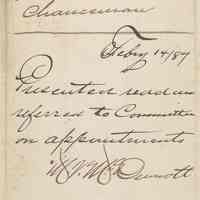 Chanceman
Feby 14/87
Presented read and
referred to Committee
on appointments
McDermott